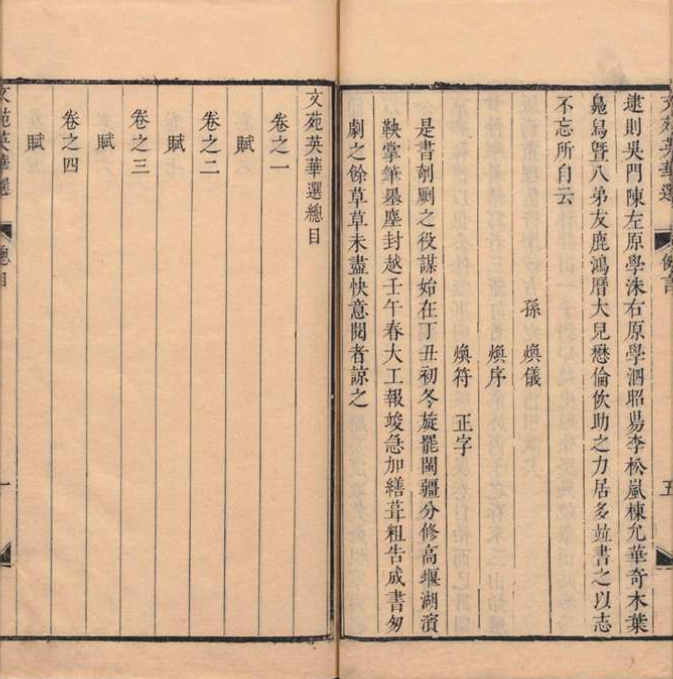 逮則吳門陳左原學洙右原學泗昭昜李松嵐棟允華奇木葉
鳧舄暨八弟友鹿鴻曆大兒懋倫佽助之力居多並書之以志
不忘所自云
孫 煥儀
煥序
煥符 正字
是書剞劂之役謀始在丁丑初冬旋罷閩疆分修高堰湖濱
鞅掌筆墨塵封越壬午春大工報竣急加繕葺粗告成書匆
劇之餘草草未盡快意閱者諒之
文苑英華選總目
卷之一
賦
卷之二
賦
卷之三
賦
卷之四
賦
文苑英華選
總目
一
五